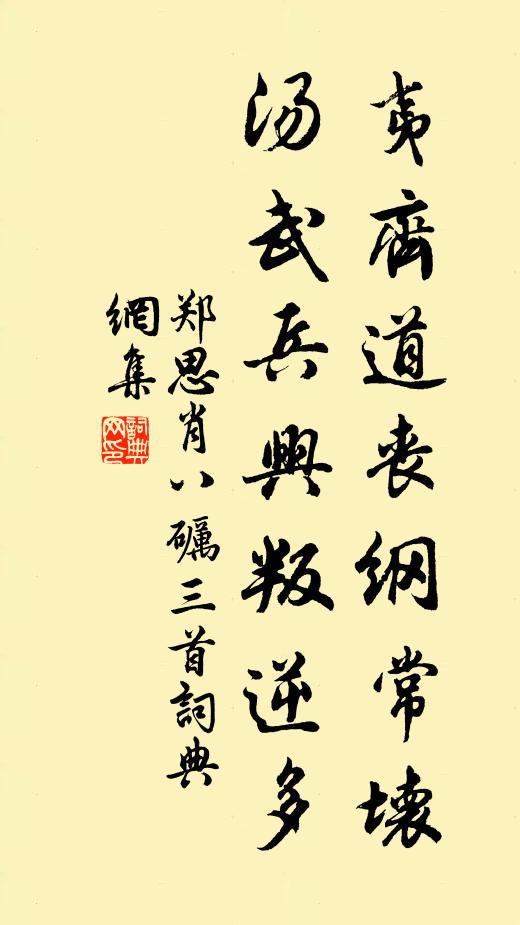 夷齊道丧纲常壊
汤武兵興叛逆多
郑思肖八礪三首詞典
網集
詞典
网印